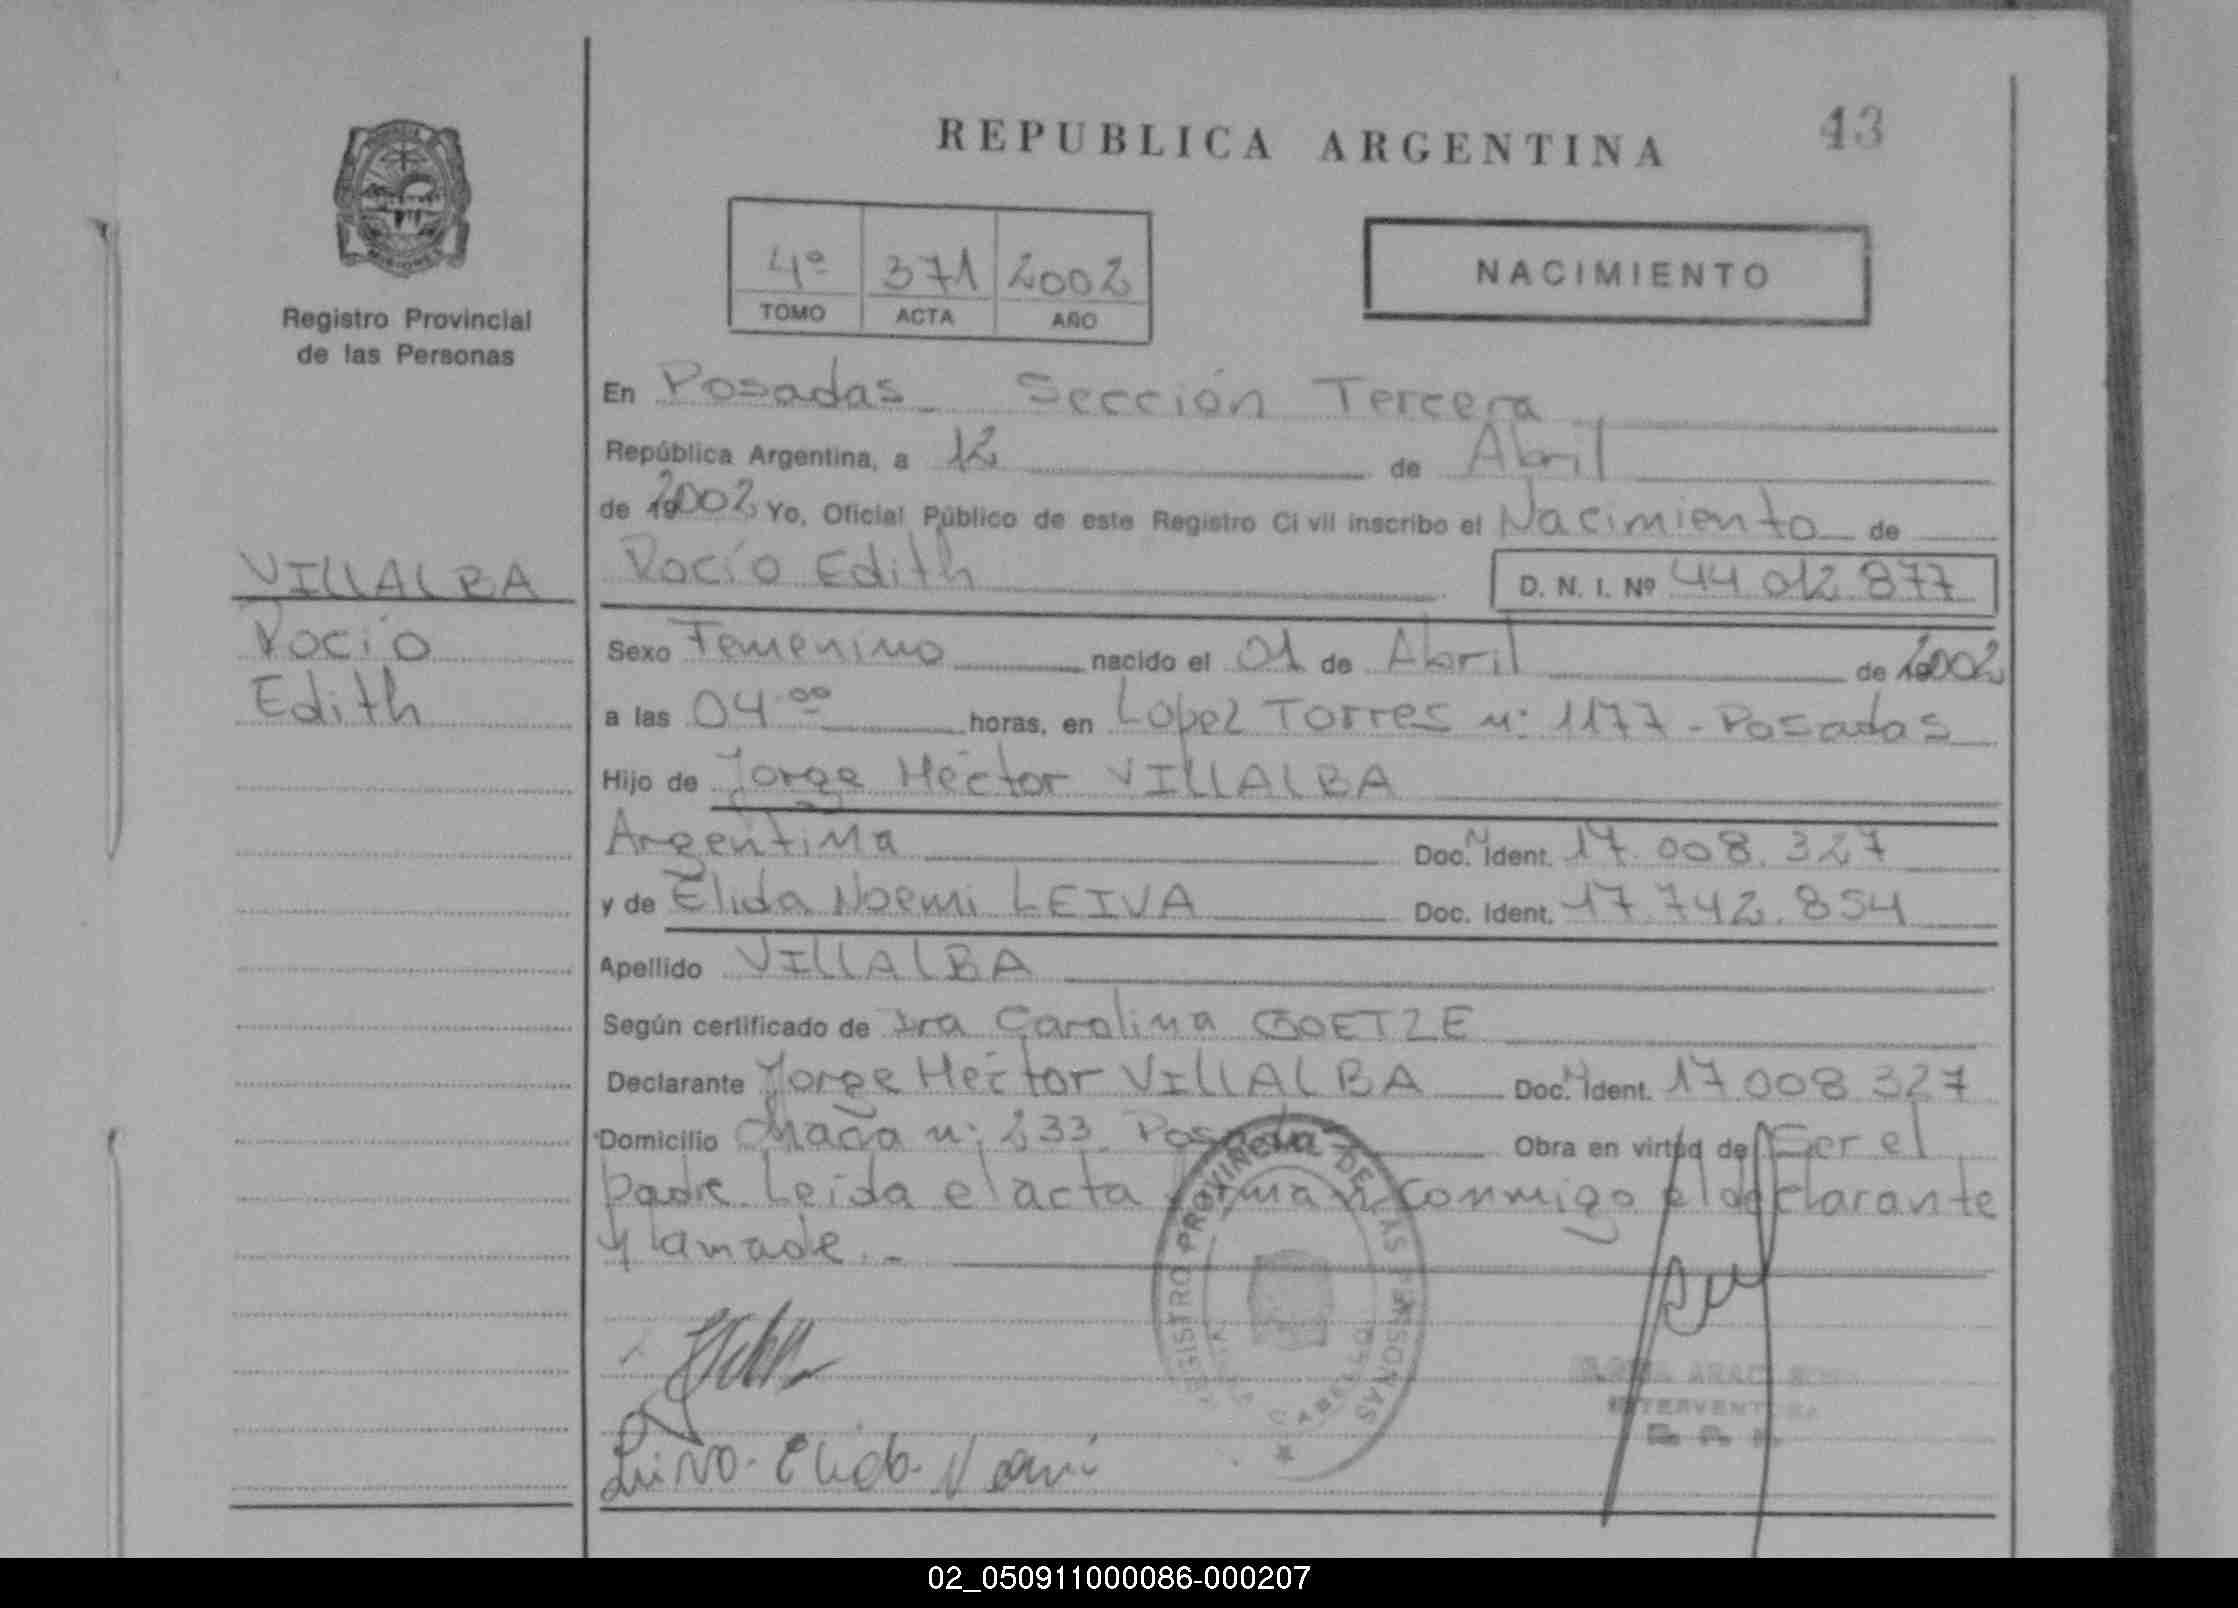 REPUBLICA ARGENTINA
43
Registro Provincial
de las Personas
4º 371 2002
TOMO ACTA AÑO
NACIMIENTO
En Posadas - Sección Tercera
República Argentina, a 12 de Abril
de 2002 Yo, Oficial Público de este Registro Civil inscribo el Nacimiento de
VILLALBA
Rocío Edith
D. N. I. Nº 44 012 877
Rocío
Edith
Sexo Femenino nacido el 01 de Abril de 2002
a las 04 00 horas, en Lopez Torres nº 1177 - Posadas
Hijo de Jorge Héctor VILLALBA
Argentina Doc. N Ident. 17.008.327
y de Elida Noemi LEIVA Doc. Ident. 17.742.854
Apellido VILLALBA
Según certificado de Dra Carolina GOETZE
Declarante Jorge Hector VILLALBA Doc. N Ident. 17.008.327
Domicilio nº 233 Posadas Obra en virtud de Ser el
padre Leída el acta firman conmigo el declarante
y la madre. -
REGISTRO PROVINCIAL DE LAS PERSONAS
CABELLO
INTERVENTORA
02_050911000086-000207